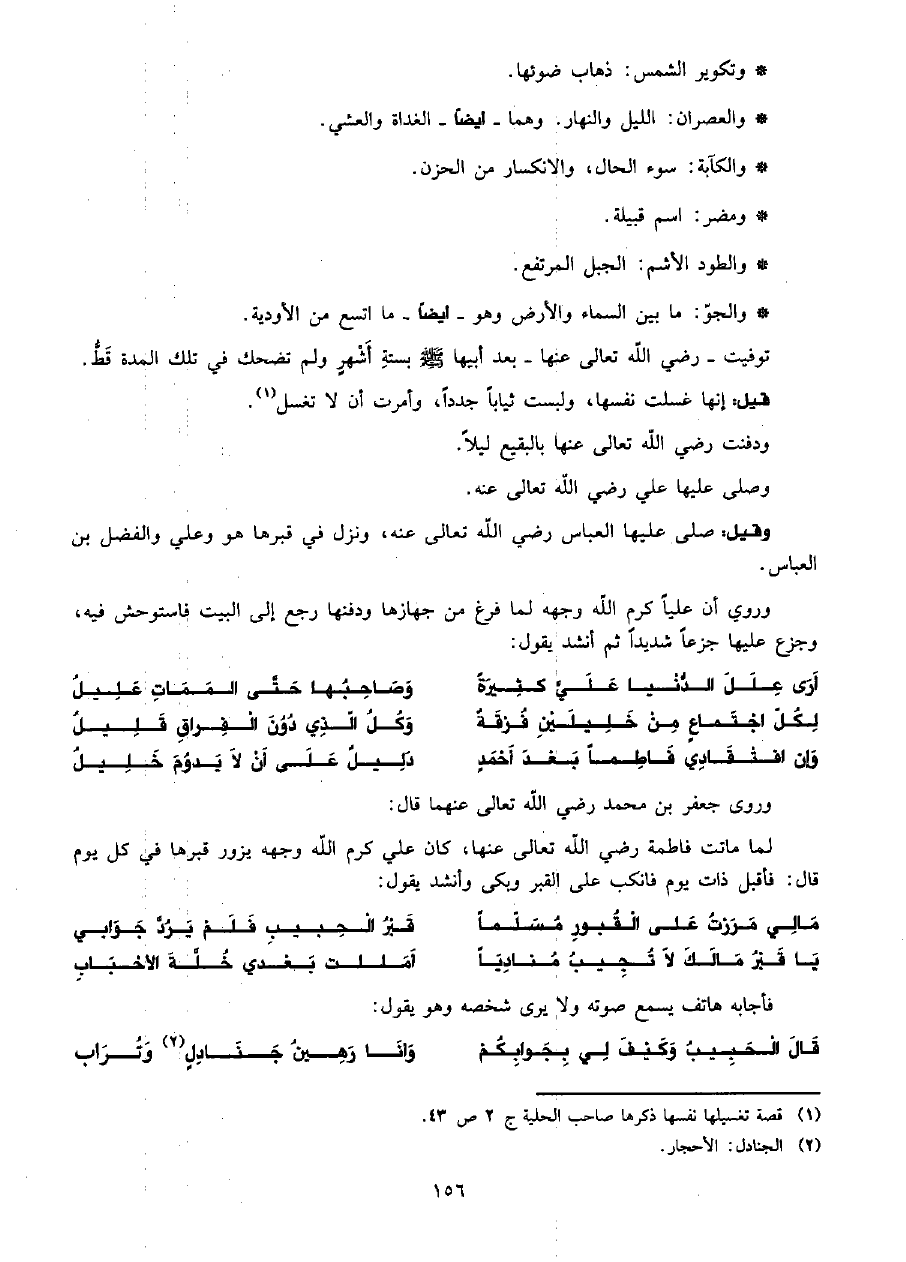 * وتكوير الشمس: ذهاب ضوئها.
* والعصران: الليل والنهار. وهما ـ ايضاً ـ الغداة والعشي.
* والكآبة: سوء الحال، والانكسار من الحزن.
* ومضر: اسم قبيلة.
* والطود الأشم: الجبل المرتفع.
* والجوّ: ما بين السماء والأرض وهو ـ ايضاً ـ ما اتسع من الأودية.
توفيت ـ رضي اللّه تعالى عنها ـ بعد أبيها ﷺ بستةِ أَشْهرٍ ولم تضحك في تلك المدة قَطُّ.
قيل: إنها غسلت نفسها، ولبست ثياباً جدداً، وأمرت أن لا تغسل(١).
ودفنت رضي اللّه تعالى عنها بالبقيع ليلاً.
وصلى عليها علي رضي اللّه تعالى عنه.
وقيل: صلى عليها العباس رضي اللّه تعالى عنه، ونزل في قبرها هو وعلي والفضل بن
العباس.
وروي أن علياً كرم اللّه وجهه لما فرغ من جهازها ودفنها رجع إلى البيت فاستوحش فيه،
وجزع عليها جزعاً شديداً ثم أنشد يقول:
أرَى عِلَلَ الدُّنْيا عَلَيَّ كثِيرَةً وَصَاحِبُها حَتَّى المَمَاتِ عَلِيلُ
لِكُلّ اجْتماعٍ مِنْ خَلِيلَيْنِ فُرْقَةٌ وَكُلُ الّذِي دُوْنَ الْفِراقِ قَلِيلُ
وَإن افْتقَادِي فَاطِماً بَعْدَ أحْمَدٍ دَلِيلٌ عَلَى أنْ لاَ يَدوُمَ خَلِيلُ
وروى جعفر بن محمد رضي اللّه تعالى عنهما قال:
لما ماتت فاطمة رضي اللّه تعالى عنها، كان علي كرم اللّه وجهه يزور قبرها في كل يوم
قال: فأقبل ذات يوم فانكب على القبر وبكى وأنشد يقول:
مَالِي مَرَرْتُ عَلى الْقُبورِ مُسَلّماً قَبْرُ الْحِبيبِ فَلَمْ يَرُدَّ جَوَابي
يَا قَبْرُ مَالَكَ لاَ تُجِيبُ مُنادِياً أمَلِلت بَعْدي خُلَّةَ الأحْبَابِ
فأجابه هاتف يسمع صوته ولا يرى شخصه وهو يقول:
قَالَ الْحَبِيبُ وَكَيْفَ لِي بِجَوابِكُمْ وَانَا رَهِينُ جَنَادِلٍ(٢) وَتُرَاب
(١) قصة تغسيلها نفسها ذكرها صاحب الحلية ج ٢ ص ٤٣.
(٢) الجنادل: الأحجار.
١٥٦